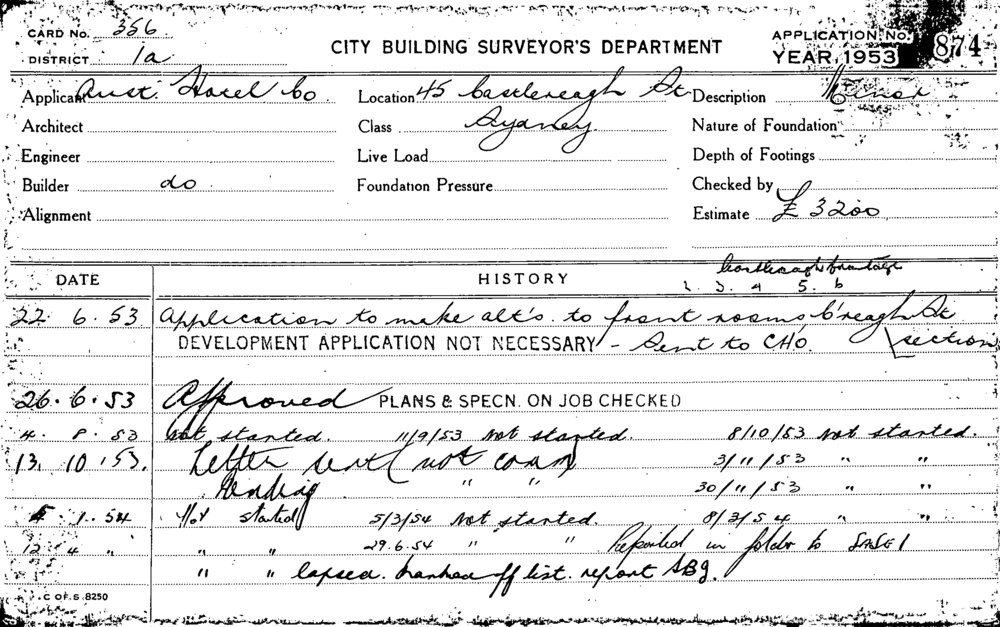 CARD No. 356
DISTRICT 1a
CITY BUILDING SURVEYOR'S DEPARTMENT
APPLICATION No. 874
YEAR 1953
Applicant Aust. Hotel Co
Location 45 Castlereagh St
Description Minor
Architect
Class Sydney
Nature of Foundation
Engineer
Live Load
Depth of Footings
Builder do
Foundation Pressure
Checked by
Alignment
Estimate £ 3200
Castlereagh frontage
DATE HISTORY 2 3. 4 5. 6
22. 6. 53 Application to make alt's. to front rooms C'reagh St
DEVELOPMENT APPLICATION NOT NECESSARY - Sent to CHO. section
26. 6. 53 Approved PLANS & SPECN. ON JOB CHECKED
4. 8. 53 Not started. 11/9/53 Not started. 8/10/53 Not started.
13. 10. 53. Letter sent (not comm 3/11/53 " "
Pending " " 30/11/53 " "
1. 54 Not started 5/3/54 Not started. 8/3/54 " "
12. 4 " " " 29.6.54 " " Reported in folder to
" " lapsed. marked off list. report
C OF S. 8250